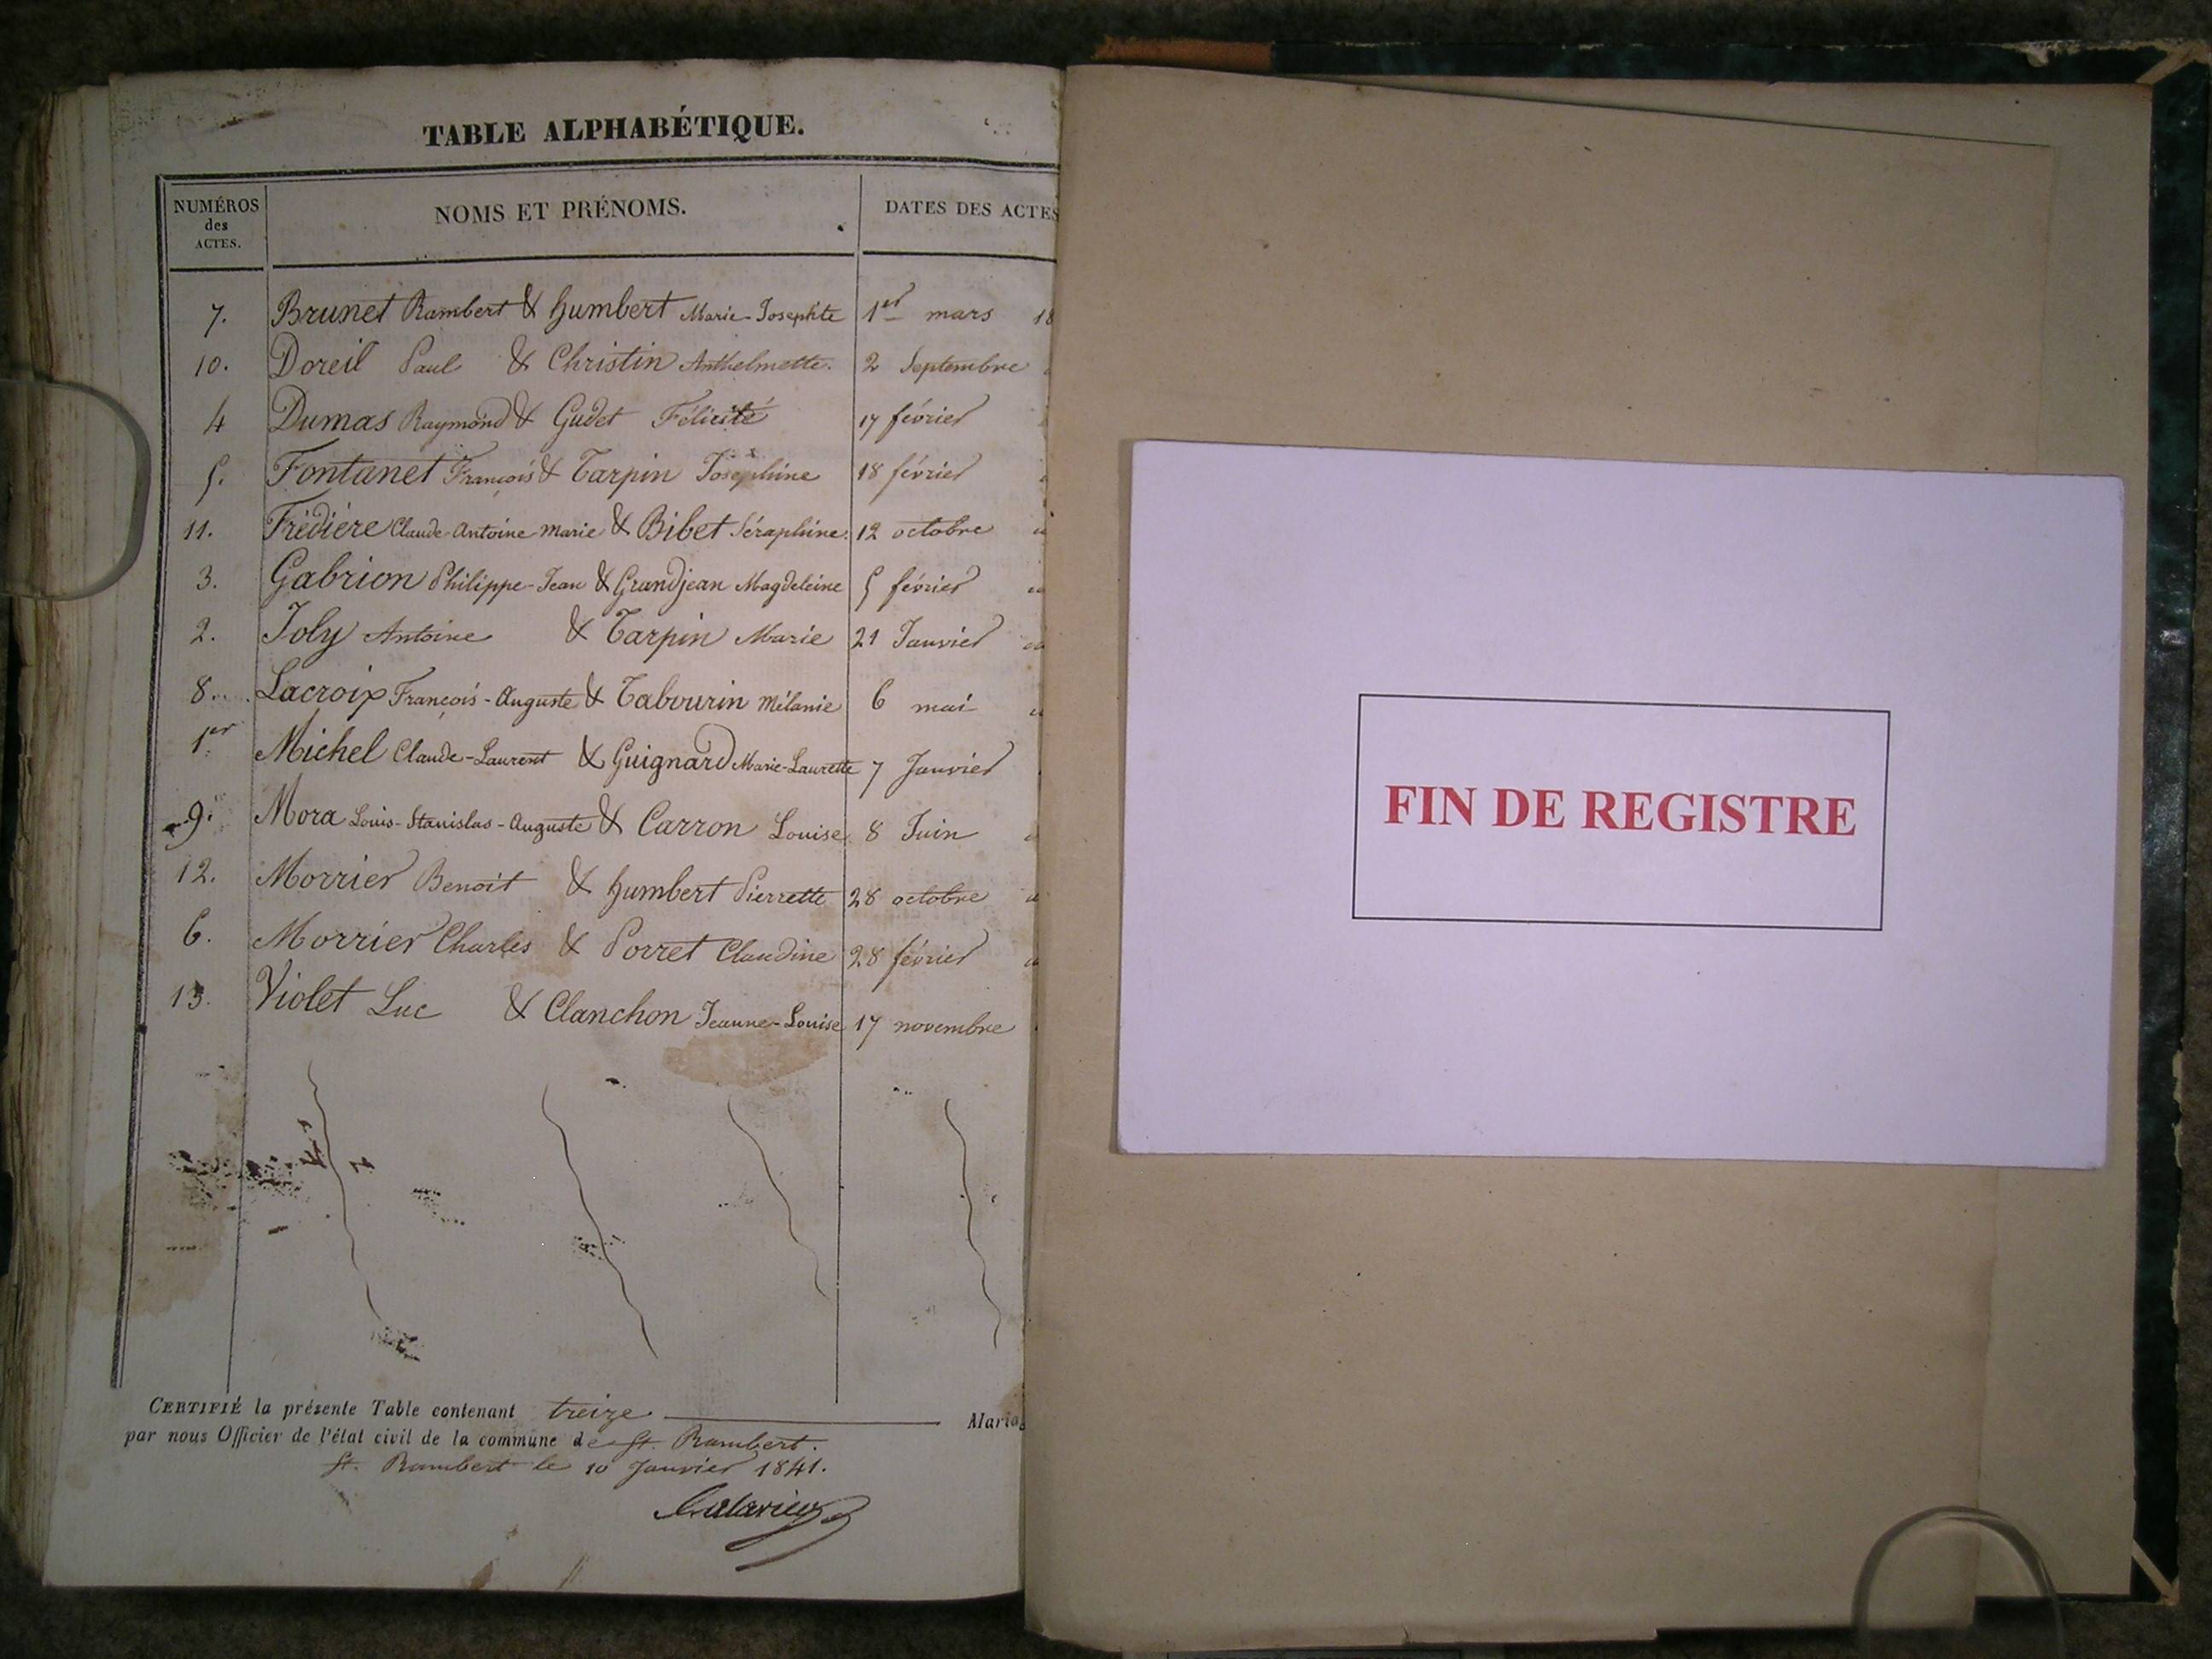 TABLE ALPHABÉTIQUE.
NUMÉROS des ACTES. NOMS ET PRÉNOMS. DATES DES ACTES
7. Brunet Rambert & humbert Marie-Josephte 1er mars 18
10. Doreil Paul & Christin Anthelmette. 2 Septembre
4 Dumas Raymond & Gudet Félicité 17 février
5. Fontanet François & Tarpin Joséphine 18 février
11. Frédiére Claude-Antoine Marie & Bibet Séraphine. 12 octobre
3. Gabrion Philippe-Jean & Grandjean Magdeleine 5 février
2. Joly Antoine & Tarpin Marie 21 Janvier
8. Lacroix François-Auguste & Tabourin Mélanie 6 mai
1er Michel Claude-Laurent & Guignard Marie-Laurette 7 Janvier
9. Mora Louis-Stanislas-Auguste & Carron Louise 8 Juin
12. Morrier Benoit & humbert Pierrette 28 octobre
6. Morrier Charles & Porret Claudine 28 février
13. Violet Luc & Clanchon Jeanne-Louise 17 novembre
CERTIFIÉ la présente Table contenant treize Mariag
par nous Officier de l'état civil de la commune de St. Rambert.
St. Rambert le 10 Janvier 1841.
FIN DE REGISTRE